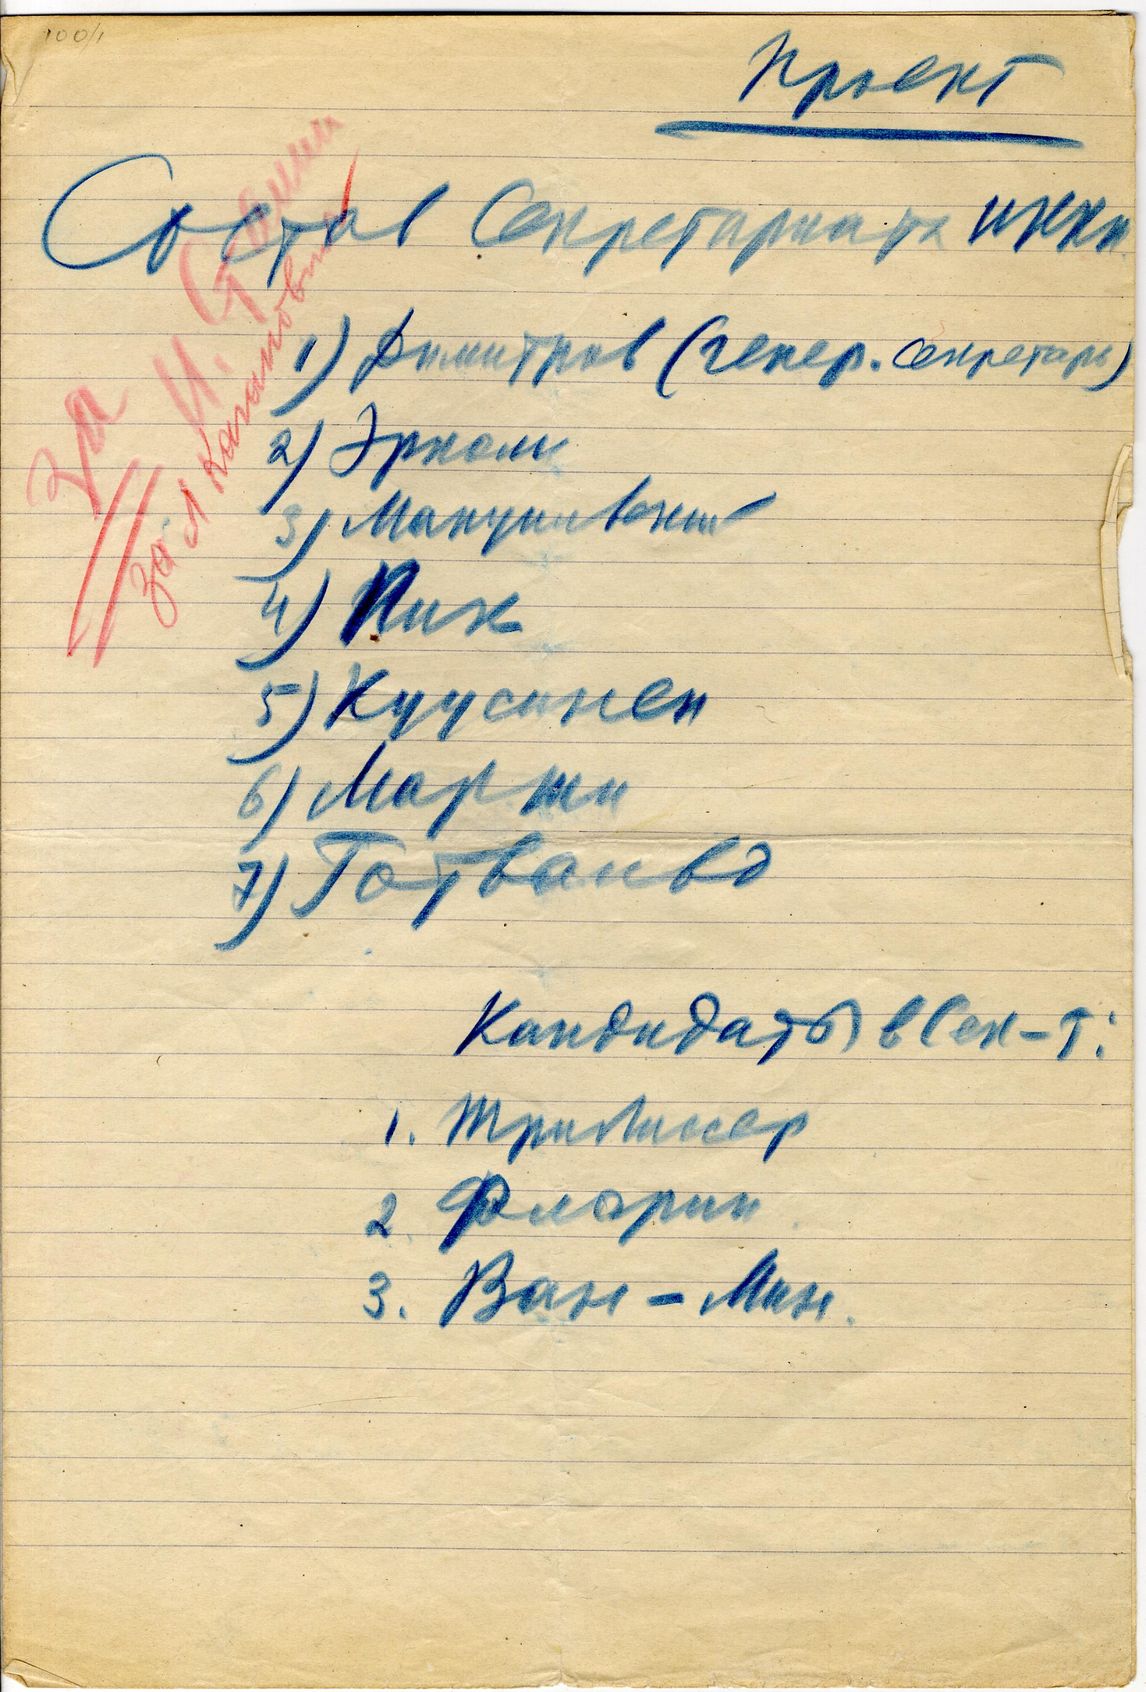 100/1
Проект
Состав Секретариата ИККИ.
1) Димитров (генер. секретарь)
2) Эрколи
3) Мануильский
4) Пик
5) Куусинен
6) Марти
7) Готвальд
Кандидаты в Сек-т:
1. Трилиссер
2. Флорин
3. Ван-Мин.
За
И. Сталин
За Л Каганович